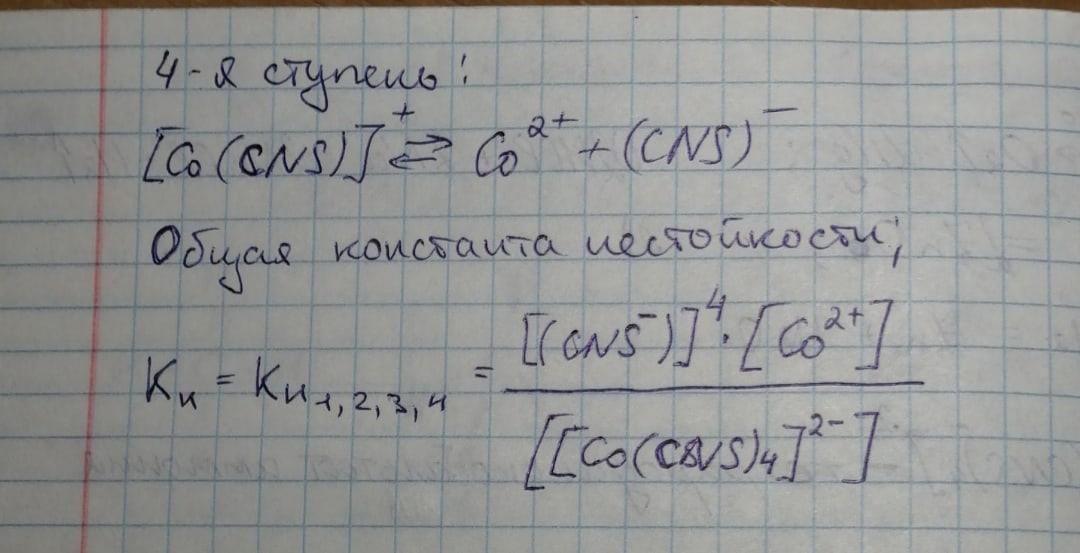 4-я ступень:
[Co(CNS)]⁺ ⇄ Co²⁺ + (CNS)⁻
Общая константа нестойкости;
Kн = Kн₁,₂,₃,₄ = [(CNS⁻)]⁴ · [Co²⁺]
[[Co(CNS)₄]²⁻]